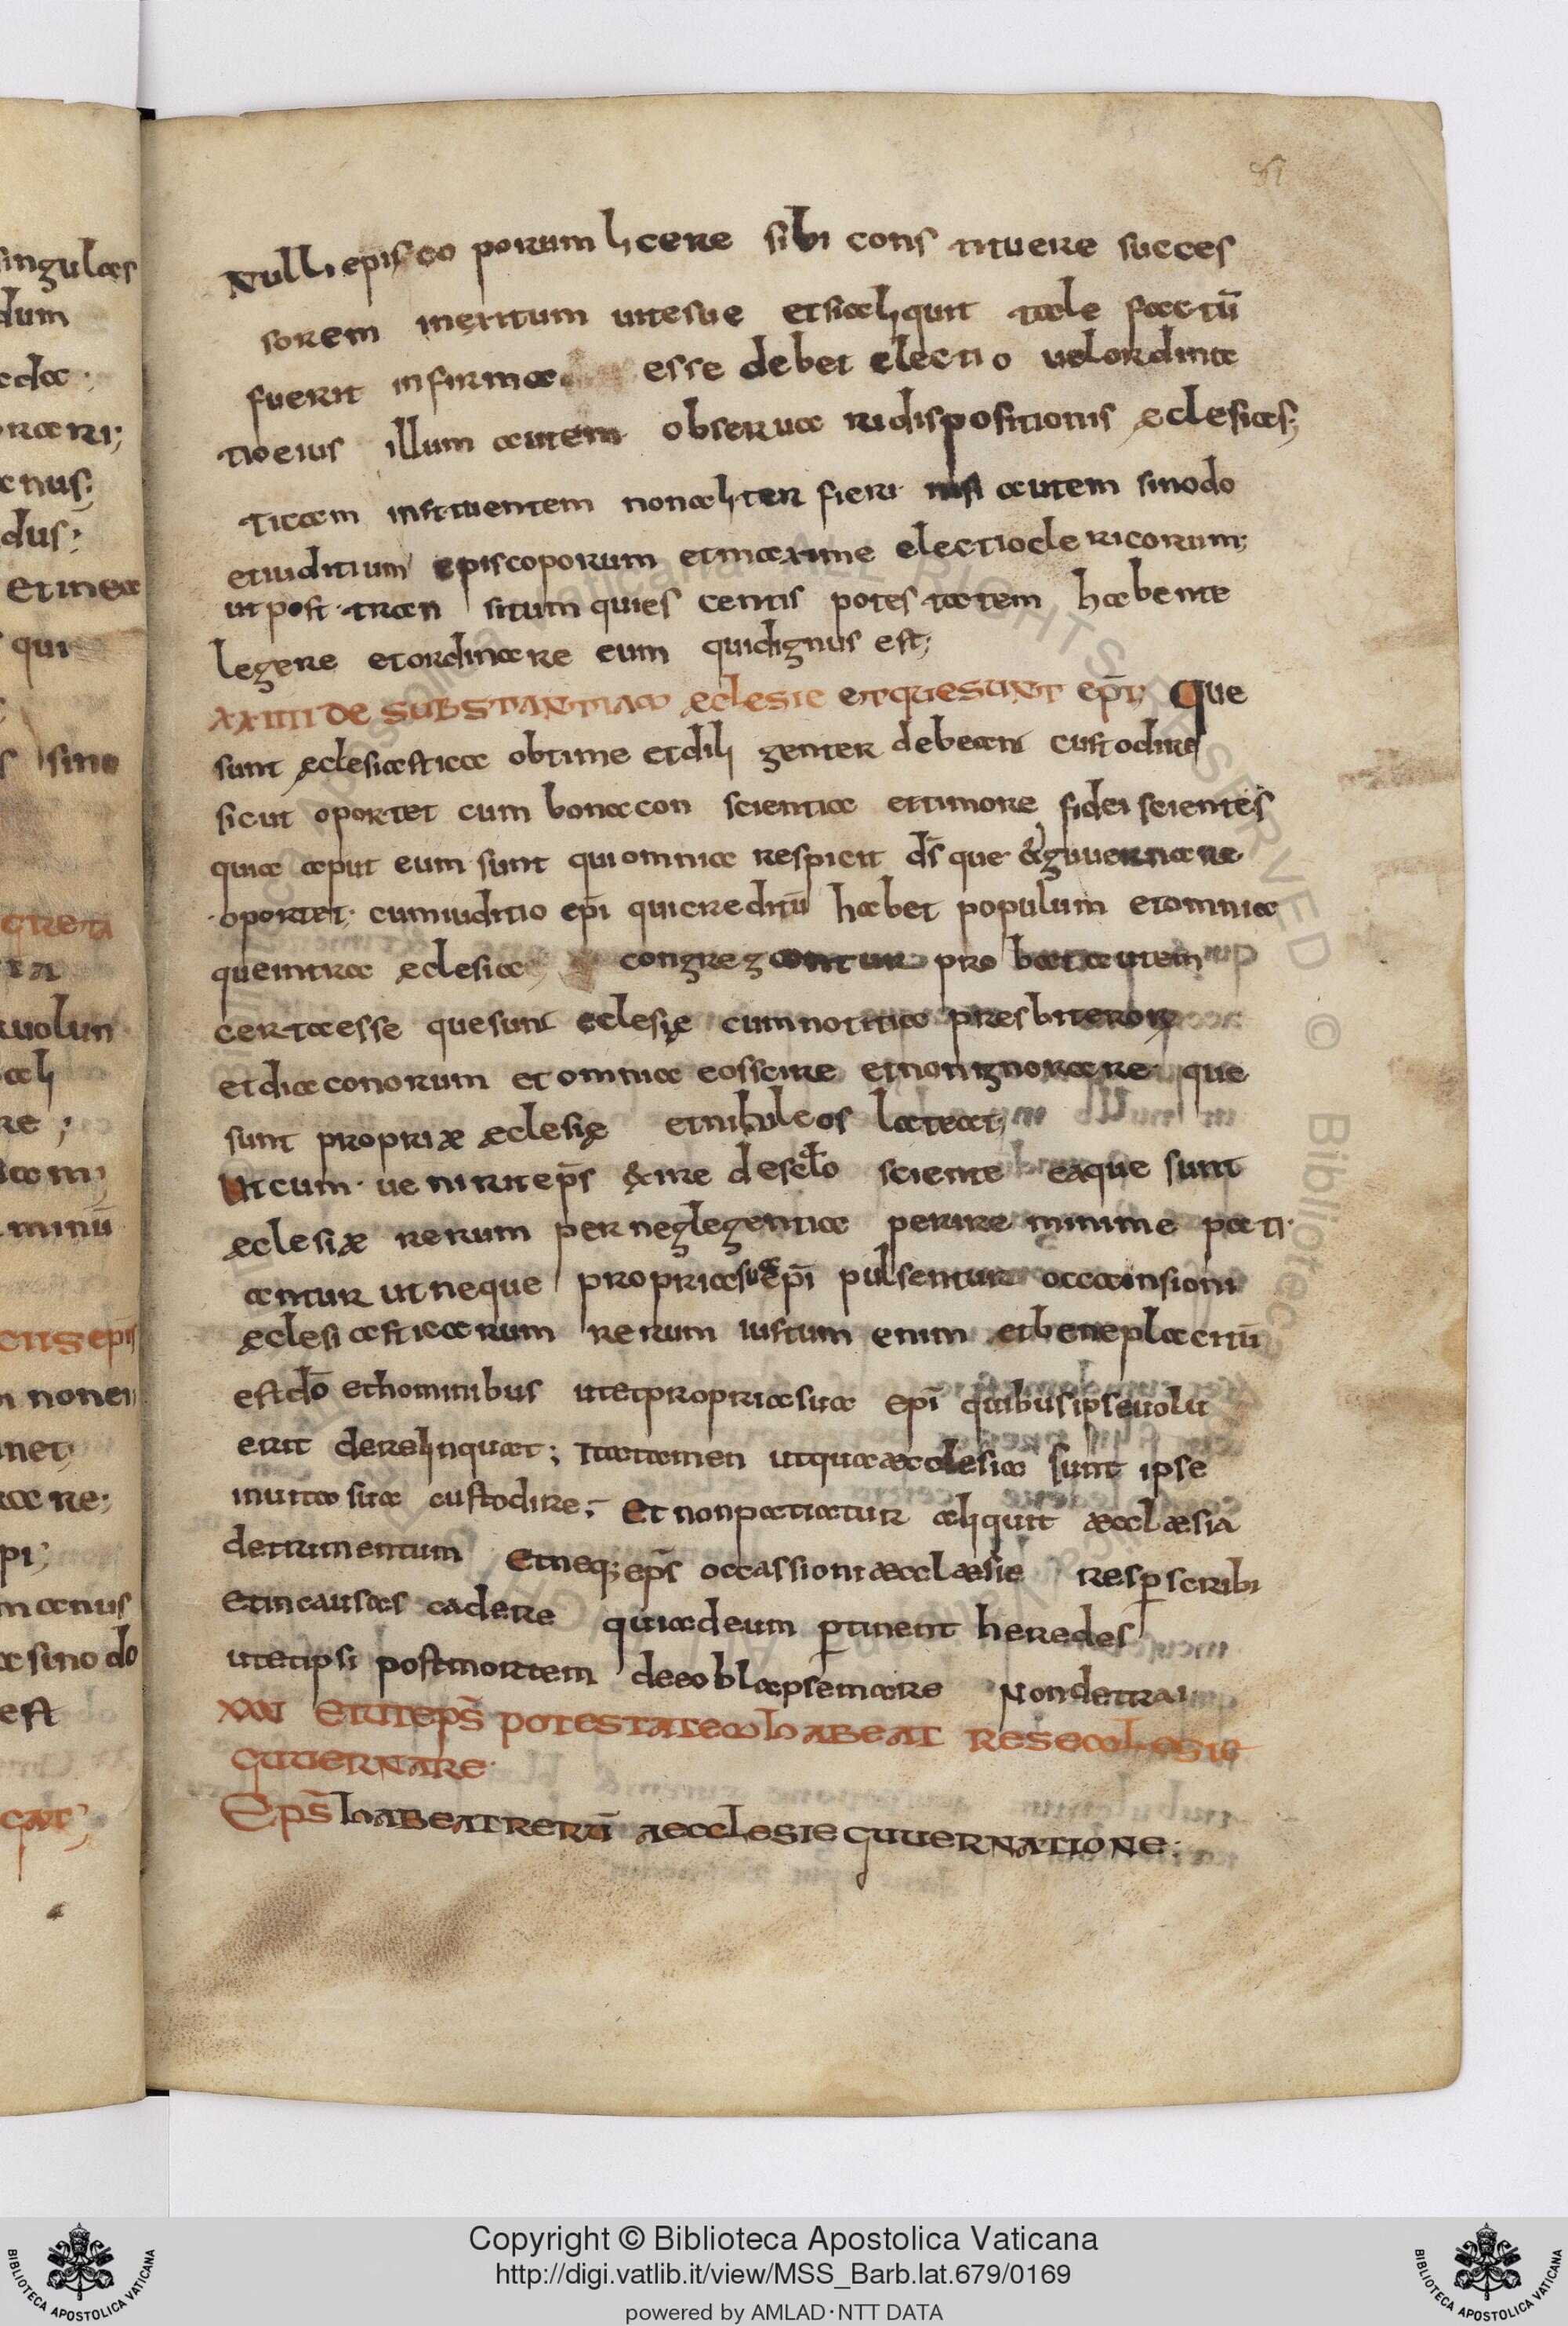 Nulli episcoporum licere sibi constituere succes
sorem inexitum uitesue etsialiquit tale factū
fuerit infirma esse debet electio uelordina
tioeius illum autem obseruari dispositionis ęclesias;
ticam instituentem nonaliter fieri nisi autem sinodo
etiuditium episcoporum etmaxime electioclericorum;
utpost transitum quiescentis potestatem habente
legere etordinare eum quidignus est;
XXIIII DE SUBSTANTIAM ęclesie etquesunt epī; Que
sunt ęclesiastica obtime etdiligenter debeant custodire
sicut oportet cum bonaconscientia ettimore fidei scientes
quia aput eum sunt quiomnia respicit d̄s que &guuernare
oportet; cumiuditio epī quicreditū habet populum etomnia
queintra eclesia congregantur pro bat autem
certaesse quesunt eclesię cumnotitia presbiteroꝝ
etdiaconorum etomnia eosscire etnonignorare que
sunt propriæ æclesię etnihileos lateat;
Utcum ueniritep̄s &ire desclo sciente eaque sunt
æclesiæ rerum perneglegentia perire minime pati
antur utneque propriasuaepī pulsentur occaansioni
æclesiasticarum rerum iustum enim etbeneplacitū
estdo ethominibus utetpropriasua epī quibusipseuolu
erit derelinquat; Itatamen utquaæcclesia sunt ipse
inuitasua custodire; Et nonpatiatur aliquit æcclæsia
detrimentum Etneq; ep̄s occassioniæcclæsie resꝑscribi
etincausas cadere quiadeum ꝑtinent heredes
utetipsi postmortem deeoblapsemare Nondetrai
XXV Etutep̄s potestatemhabeat res ecclesie
guuernare
Ep̄s habeatrerū aecclesie guuernatione;
Copyright © Biblioteca Apostolica Vaticana
http://digi.vatlib.it/view/MSS_Barb.lat.679/0169
powered by AMLAD·NTT DATA